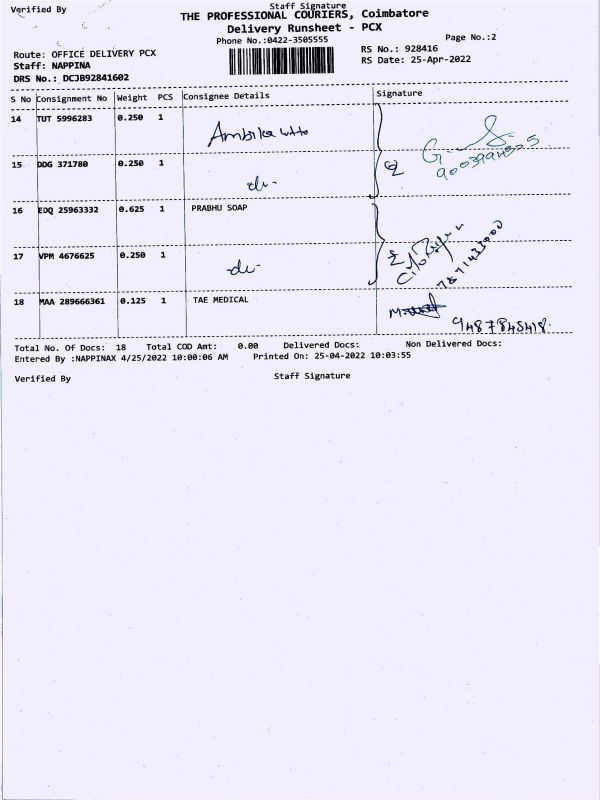 Verified By Staff Signature
THE PROFESSIONAL COURIERS, Coimbatore
Delivery Runsheet - PCX
Phone No.:0422-3505555 Page No.:2
Route: OFFICE DELIVERY PCX RS No.: 928416
Staff: NAPPINA RS Date: 25-Apr-2022
DRS No.: DCJB92841602
S No Consignment No Weight PCS Consignee Details Signature
14 TUT 5996283 0.250 1 Ambika
15 DDG 371780 0.250 1
16 EDQ 25963332 0.625 1 PRABHU SOAP
17 VPM 4676625 0.250 1
18 MAA 289666361 0.125 1 TAE MEDICAL
9487845418.
Total No. Of Docs: 18 Total COD Amt: 0.00 Delivered Docs: Non Delivered Docs:
Entered By :NAPPINAX 4/25/2022 10:00:06 AM Printed On: 25-04-2022 10:03:55
Verified By Staff Signature